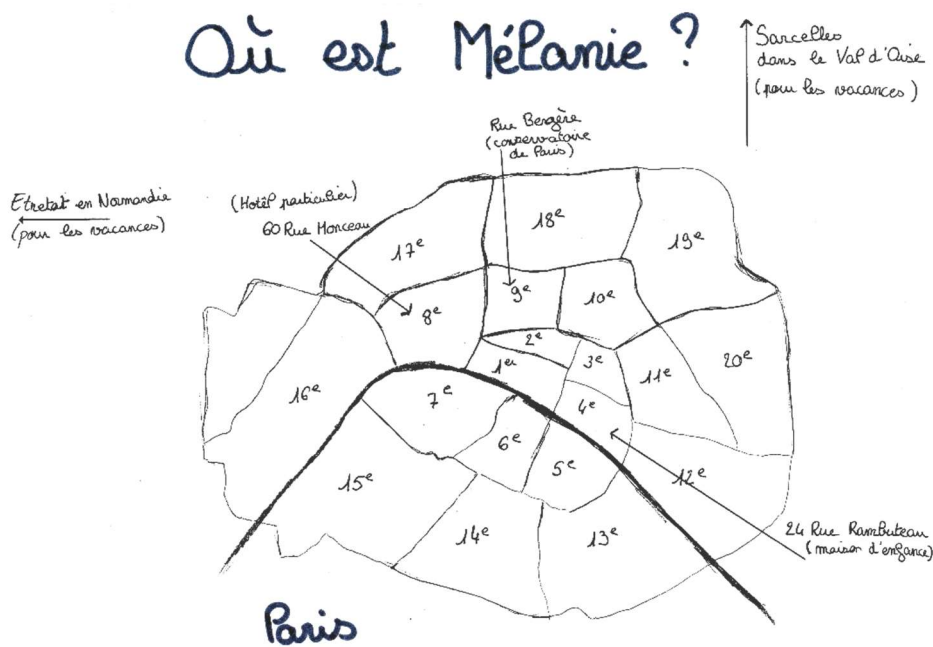 Où est Mélanie ?
Sarcelles
dans le Val d'Oise
(pour les vacances)
Rue Bergère
(conservatoire
de Paris)
Etretat en Normandie
(pour les vacances)
(Hotêl particulier)
60 Rue Monceau
17e
18e
19e
8e
9e
10e
2e
1er
3e
11e
20e
16e
7e
4e
6e
5e
12e
15e
14e
13e
24 Rue Rambuteau
(maison d'enfance)
Paris